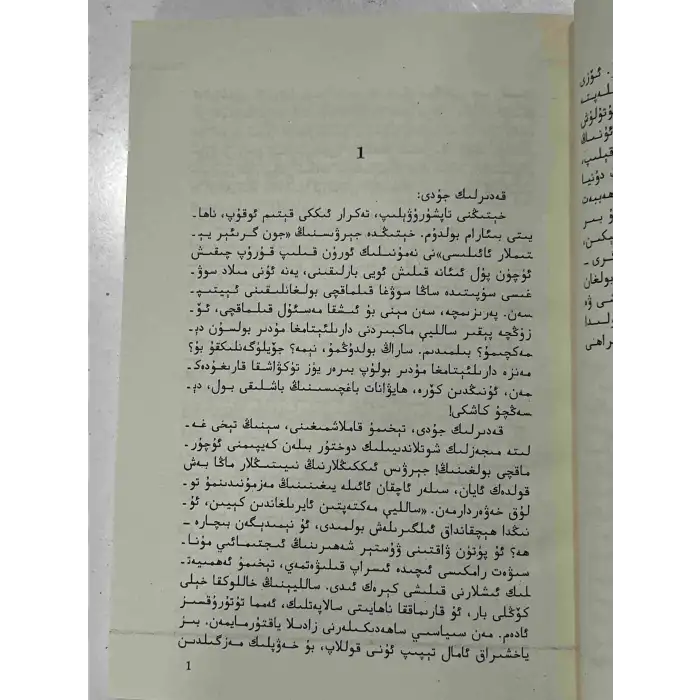 1
قەدىرلىك جۇدى:
خېتىڭنى تاپشۇرۇۋېلىپ، تەكرار ئىككى قېتىم ئوقۇپ، ناھا-
يىتى بىئارام بولدۇم. خېتىڭدە جېرۋىسنىڭ «جون گرئېر يې-
تىملار ئائىلىسى»نى نەمۇنىلىك ئورۇن قىلىپ قۇرۇپ چىقىش
ئۈچۈن پۇل ئىئانە قىلىش ئويى بارلىقىنى، يەنە ئۇنى مىلاد سوۋ-
غىسى سۈپىتىدە ساڭا سوۋغا قىلماقچى بولغانلىقىنى ئېيتىپ-
سەن. پەرىزىمچە، سەن مېنى بۇ ئىشقا مەسئۇل قىلماقچى، ئۆ-
زۈڭچە پېقىر سالليې ماكبىردنى دارىلئېتامغا مۇدىر بولسۇن دې-
مەكچىمۇ؟ بىلمىدىم. ساراڭ بولدۇڭمۇ، نېمە؟ جۆيلۈگەنلىكقۇ بۇ؟
مەنزە دارىلئېتامغا مۇدىر بولۇپ بىرەر يۈز تۈكۋاشقا قارىغۇدەك-
مەن، ئۇنىڭدىن كۆرە، ھايۋانات باغچىسىنىڭ باشلىقى بول، دې-
سەڭچۇ كاشكى!
قەدىرلىك جۇدى، تېخىمۇ قاملاشمىغىنى، سېنىڭ تېخى غە-
لىتە مىجەزلىك شوتلاندىيىلىك دوختۇر بىلەن كەيپىمنى ئۇچۇر-
ماقچى بولغىنىڭ! جېرۋىس ئىككىڭلارنىڭ نىيىتىڭلار ماڭا بەش
قولدەك ئايان، سىلەر ئاچقان ئائىلە يىغىنىنىڭ مەزمۇنىدىنمۇ تو-
لۇق خەۋەردارمەن. «سالليې مەكتەپتىن ئايرىلغاندىن كېيىن، ئۇ-
نىڭدا ھېچقانداق ئىلگىرىلەش بولمىدى، ئۇ نېمىدېگەن بىچارە -
ھە؟ ئۇ پۈتۈن ۋاقتىنى ۋۇستېر شەھىرىنىڭ ئىجتىمائىي مۇنا-
سىۋەت رامكىسى ئىچىدە ئىسراپ قىلىۋەتمەي، تېخىمۇ ئەھمىيەت-
لىك ئىشلارنى قىلىشى كېرەك ئىدى. سالليېنىڭ خاللوكقا خېلى
كۆڭلى بار، ئۇ قارىماققا ناھايىتى سالاپەتلىك، ئەمما تۇتۇرۇقسىز
ئادەم. مەن سىياسىي ساھەدىكىلەرنى زادىلا ياقتۇرمايمەن. بىز
ياخشىراق ئامال تېپىپ ئۇنى قوللاپ، بۇ خەۋپلىك مەزگىلدىن
1